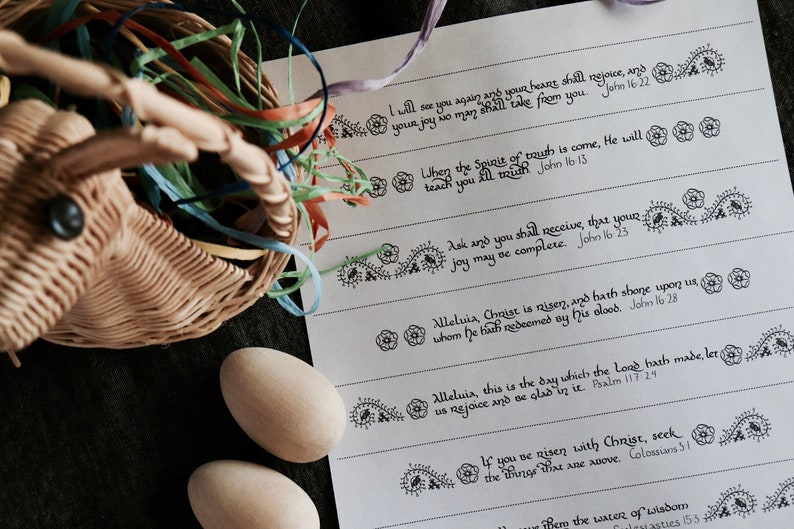 I will see you again and your heart shall rejoice, and
your joy no man shall take from you. John 16:22
When the Spirit of truth is come, He will
teach you all truth. John 16:13
Ask and you shall receive, that your
joy may be complete. John 16:23
Alleluia, Christ is risen, and hath shone upon us,
whom he hath redeemed by his blood. John 16:28
Alleluia, this is the day which the Lord hath made, let
us rejoice and be glad in it. Psalm 117:24
If you be risen with Christ, seek
the things that are above. Colossians 3:1
them the water of wisdom
15:3